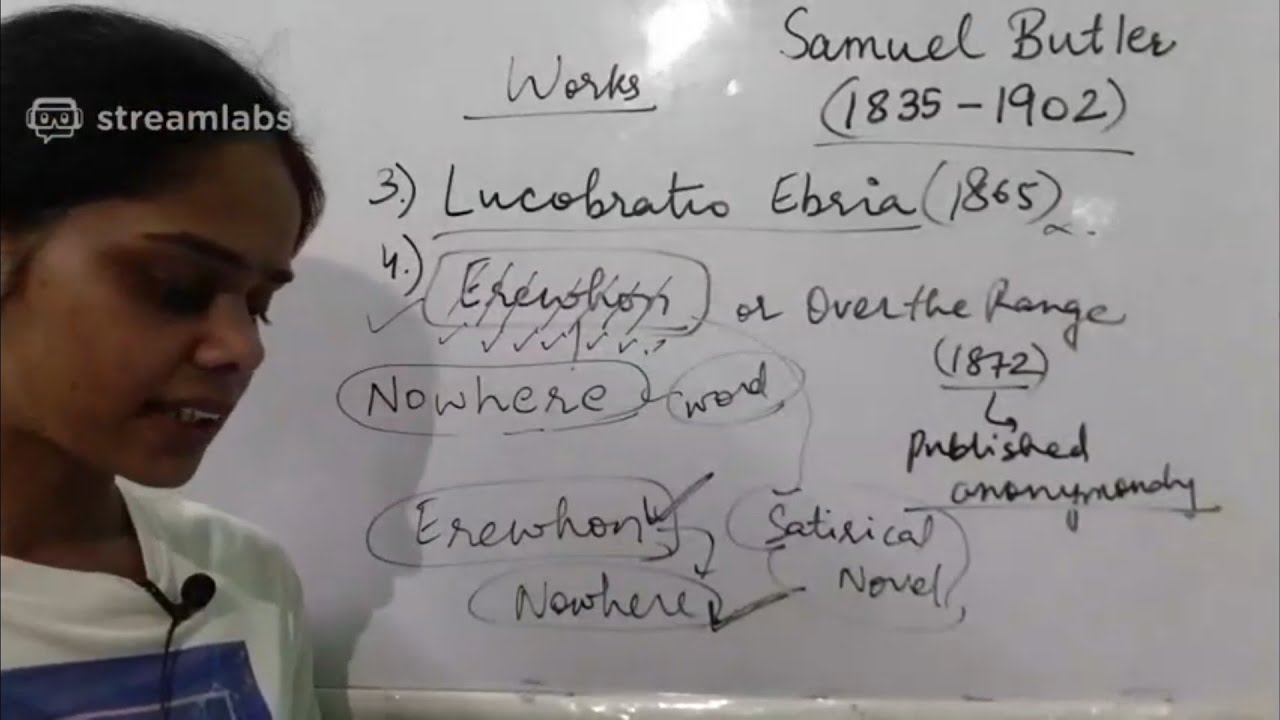 streamlabs
Works
Samuel Butler
(1835-1902)
3.) Lucobratio Ebria (1865)
4.) Erewhon or Over the Range
(1872)
Nowhere word
published
anonymondy
Erewhon Satirical
Nowhere Novel